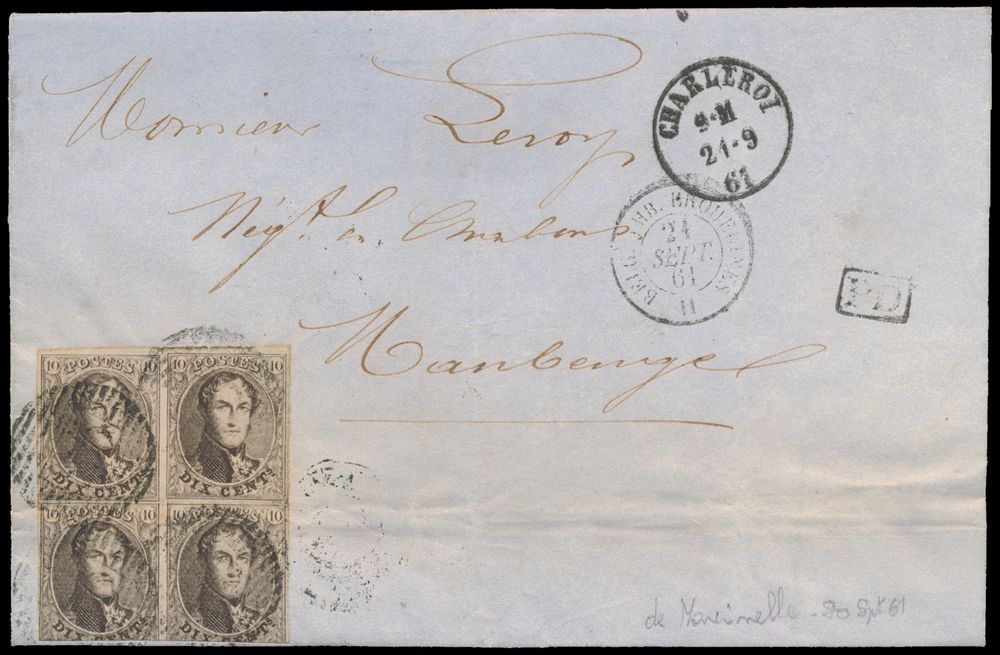 Monsieur Leroy
Négt. en Charbons
Maubeuge
CHARLEROI
9·M
21-9
61
BELG. AMB. ERQUELINES
21
SEPT.
61
11
PD
10 POSTES 10
DIX CENTS
10 POSTES 10
DIX CENTS
10 POSTES 10
DIX CENTS
10 POSTES 10
DIX CENTS
de Marcinelle - 20 Spt 61